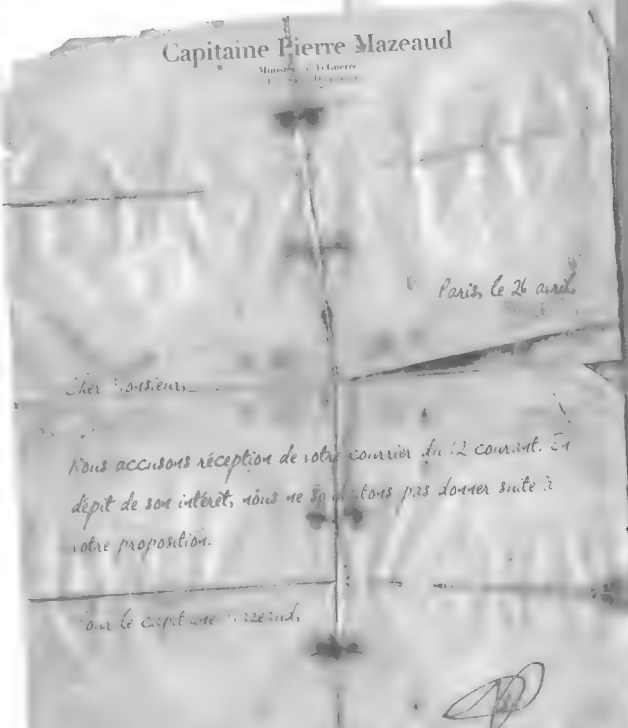 Capitaine Pierre Mazeaud
Ministère de la Guerre
Paris, le 26 avril
Cher Monsieur,
Nous accusons réception de votre courrier du 12 courant. En
dépit de son intérêt, nous ne souhaitons pas donner suite à
votre proposition.
Pour le capitaine Mazeaud,